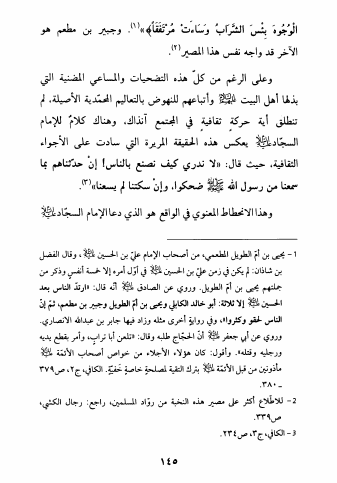 الْوُجُوهَ بِئْسَ الشَّرَابُ وَسَاءَتْ مُرْتَفَقًا﴾»(١). وجبير بن مطعم هو
الآخر قد واجه نفس هذا المصير(٢).
وعلى الرغم من كلّ هذه التضحيات والمساعي المضنية التي
بذلها أهل البيت ﷺ وأتباعهم للنهوض بالتعاليم المحمّدية الأصيلة، لم
تنطلق أية حركةٍ ثقافيةٍ في المجتمع آنذاك، وهناك كلامٌ للإمام
السجّاد ﷺ يعكس هذه الحقيقة المريرة التي سادت على الأجواء
الثقافية، حيث قال: «لا ندري كيف نصنع بالناس! إنْ حدثناهم بما
سمعنا من رسول الله ﷺ ضحكوا، وإن سكتنا لم يسعنا»(٣).
وهذا الانحطاط المعنوي في الواقع هو الذي دعا الإمام السجّاد ﷺ
١ - يحيى بن أمّ الطويل المطعمي، من أصحاب الإمام عليّ بن الحسين ﷺ، وقال الفضل
بن شاذان: لم يكن في زمن عليّ بن الحسين ﷺ في أوّل أمره إلا خمسة أنفسٍ وذكر من
جملتهم يحيى بن أمّ الطويل. وروي عن الصادق ﷺ أنّه قال: «ارتدّ الناس بعد
الحسين ﷺ إلا ثلاثة: أبو خالد الكابلي ويحيى بن أمّ الطويل وجبير بن مطعم، ثمّ إنّ
الناس لحقو وكثروا»، وفي رواية أخرى مثله وزاد فيها جابر بن عبدالله الانصاري.
وروي عن أبي جعفر ﷺ أنّ الحجّاج طلبه وقال: «تلعن أبا تراب، وأمر بقطع يديه
ورجليه وقتله». وأقول: كان هؤلاء الأجلاء من خواص أصحاب الأئمّة ﷺ
مأذونين من قبل الأئمّة ﷺ بترك التقية لمصلحة خاصةٍ خفيّةٍ. الكافي، ج٢، ص٣٧٩
ـ ٣٨٠.
٢ - للاطّلاع أكثر على مصير هذه النخبة من روّاد المسلمين، راجع: رجال الكشي،
ص٣٣٩.
٣ - الكافي، ج٣، ص٢٣٤.
١٤٥